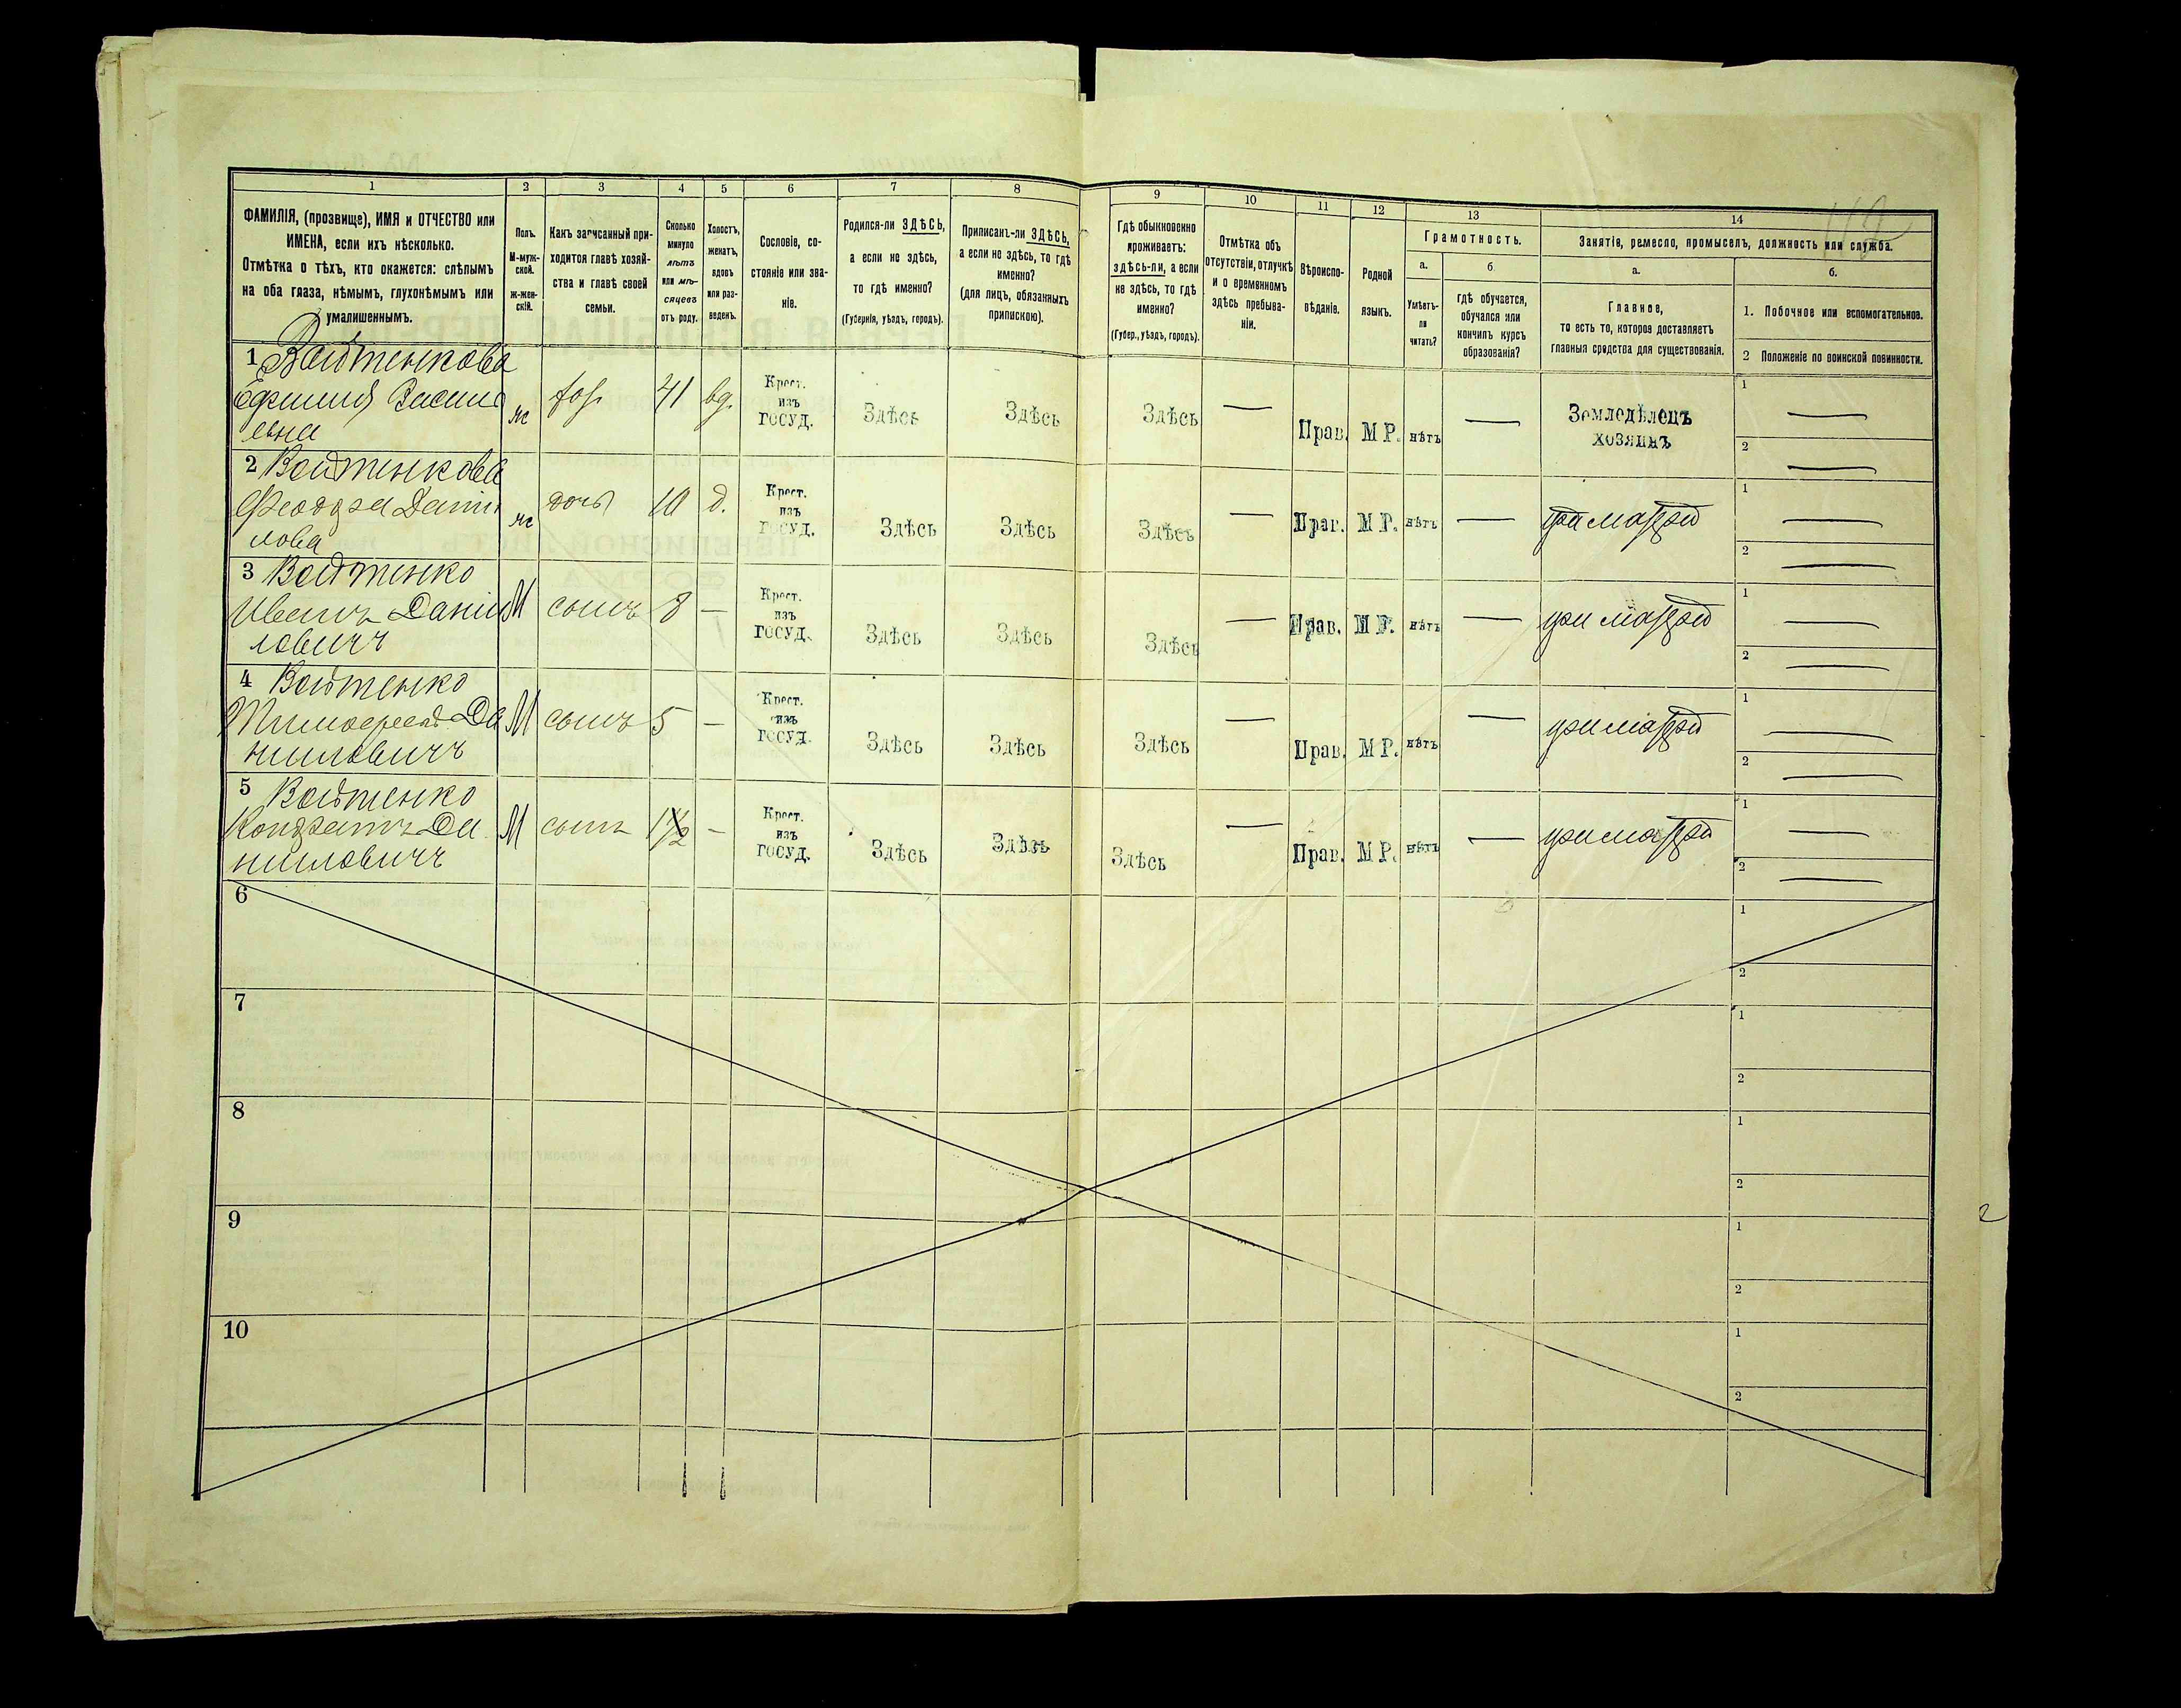 112
1 2 3 4 5 6 7 8 9 10 11 12 13 14
ФАМИЛІЯ, (прозвище), ИМЯ и ОТЧЕСТВО или
ИМЕНА, если ихъ нѣсколько.
Отмѣтка о тѣхъ, кто окажется: слѣпымъ
на оба глаза, нѣмымъ, глухонѣмымъ или
умалишеннымъ.
Полъ.
М-муж-
ской.
ж-жен-
скій.
Какъ записанный при-
ходится главѣ хозяй-
ства и главѣ своей
семьи.
Сколько
минуло
лѣтъ
или мѣ-
сяцевъ
отъ роду.
Холостъ,
женатъ,
вдовъ
или раз-
веденъ.
Сословіе, со-
стояніе или зва-
ніе.
Родился-ли ЗДѢСЬ,
а если не здѣсь,
то гдѣ именно?
(Губернія, уѣздъ, городъ).
Приписанъ-ли ЗДѢСЬ,
а если не здѣсь, то гдѣ
именно?
(для лицъ, обязанныхъ
припискою).
Гдѣ обыкновенно
проживаетъ:
здѣсь-ли, а если
не здѣсь, то гдѣ
именно?
(Губер., уѣздъ, городъ).
Отмѣтка объ
отсутствіи, отлучкѣ
и о временномъ
здѣсь пребыва-
ніи.
Вѣроиспо-
вѣданіе.
Родной
языкъ.
Грамотность.
а.
Умѣетъ-
ли
читать?
б.
гдѣ обучается,
обучался или
кончилъ курсъ
образованія?
Занятіе, ремесло, промыселъ, должность или служба.
а.
Главное,
то есть то, которое доставляетъ
главныя средства для существованія.
б.
1. Побочное или вспомогательное.
2 Положеніе по воинской повинности.
1 Войтенкова
Ефимія Василь
евна
ж 41 вд.
Крест.
изъ
госуд.
Здѣсь Здѣсь Здѣсь — Прав. М Р. нѣтъ —
Земледѣлецъ
хозяинъ
1 —
2 —
2 Войтенкова
Феодора Дани
лова
ж дочь 10 д.
Крест.
изъ
госуд.
Здѣсь Здѣсь Здѣсь — Прав. М Р. нѣтъ — при матери
1 —
2 —
3 Войтенко
Иванъ Даніи
ловичъ
М сынъ 8 —
Крест.
изъ
госуд.
Здѣсь Здѣсь Здѣсь — Прав. М Р. нѣтъ — при матери
1 —
2 —
4 Войтенко
Тимофей Да
ниловичъ
М сынъ 5 —
Крест.
изъ
госуд.
Здѣсь Здѣсь Здѣсь — Прав. М Р. нѣтъ — при матери
1 —
2 —
5 Войтенко
Кондратъ Да
ниловичъ
М сынъ 1½ —
Крест.
изъ
госуд.
Здѣсь Здѣсь Здѣсь — Прав. М Р. нѣтъ — при матери
1 —
2 —
6
1
2
7
1
2
8
1
2
9
1
2
10
1
2